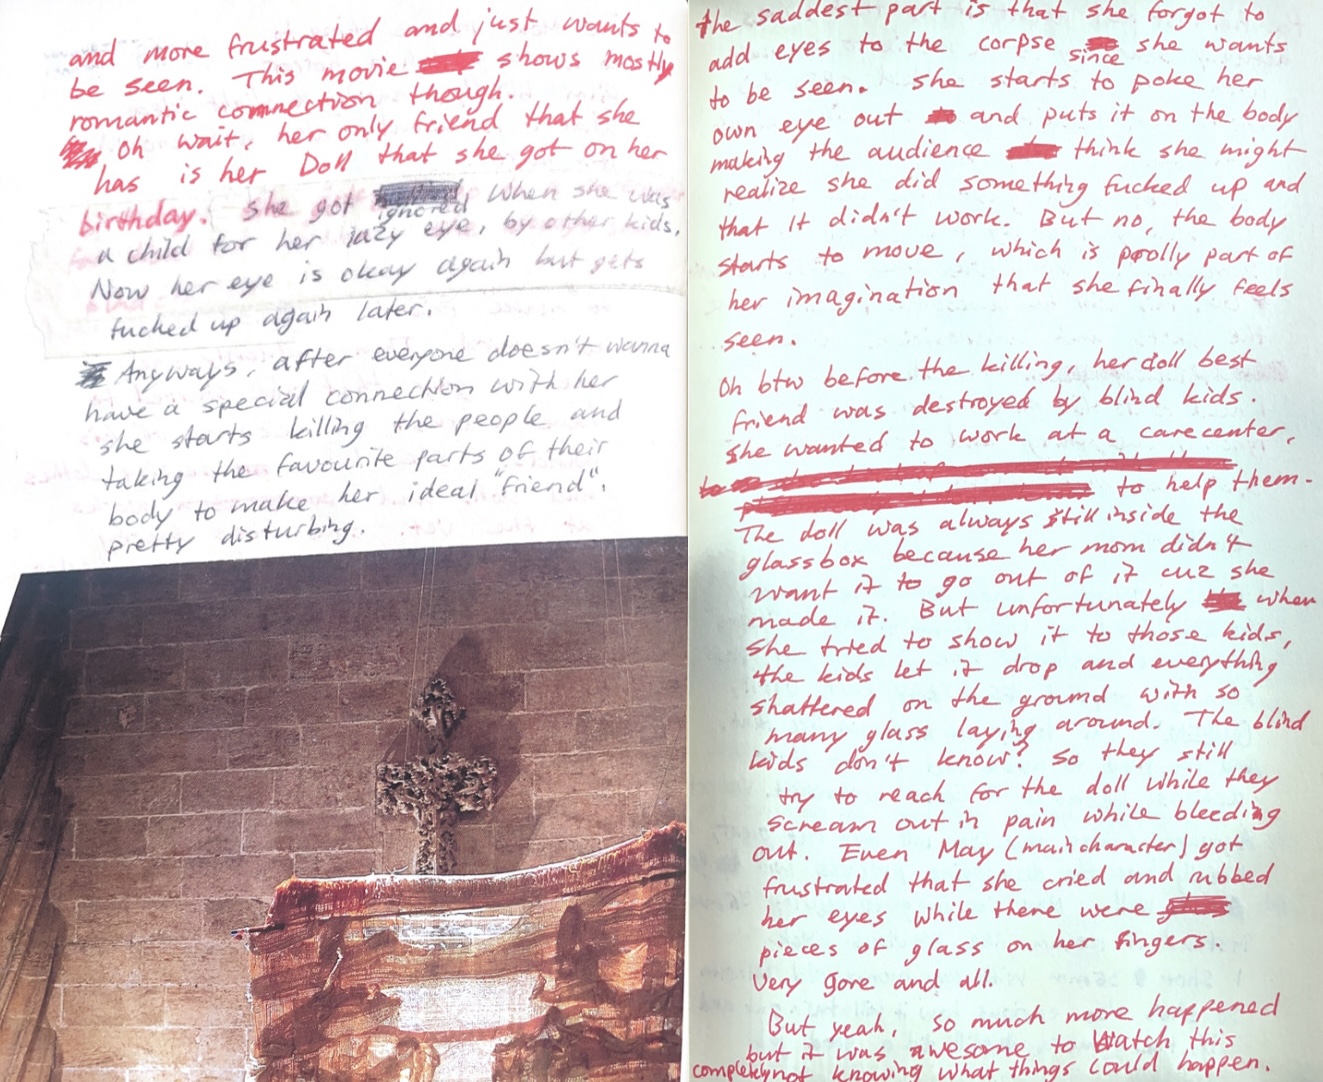 and more frustrated and just wants to
be seen. This movie shows mostly
romantic connection though.
Oh wait, her only friend that she
has is her Doll that she got on her
birthday. She got ignored when she was
a child for her lazy eye, by other kids.
Now her eye is okay again but gets
fucked up again later.
Anyways, after everyone doesn't wanna
have a special connection with her
she starts killing the people and
taking the favourite parts of their
body to make her ideal "friend".
pretty disturbing.
the saddest part is that she forgot to
add eyes to the corpse since she wants
to be seen. she starts to poke her
own eye out and puts it on the body
making the audience think she might
realize she did something fucked up and
that it didn't work. But no, the body
starts to move, which is prolly part of
her imagination that she finally feels
seen.
Oh btw before the killing, her doll best
friend was destroyed by blind kids.
She wanted to work at a carecenter,
to help them.
The doll was always still inside the
glassbox because her mom didn't
want it to go out of it cuz she
made it. But unfortunately when
she tried to show it to those kids,
the kids let it drop and everything
shattered on the ground with so
many glass laying around. The blind
kids don't know? So they still
try to reach for the doll while they
scream out in pain while bleeding
out. Even May (main character) got
frustrated that she cried and rubbed
her eyes while there were
pieces of glass on her fingers.
Very gore and all.
But yeah, so much more happened
but it was awesome to watch this
completely not knowing what things could happen.